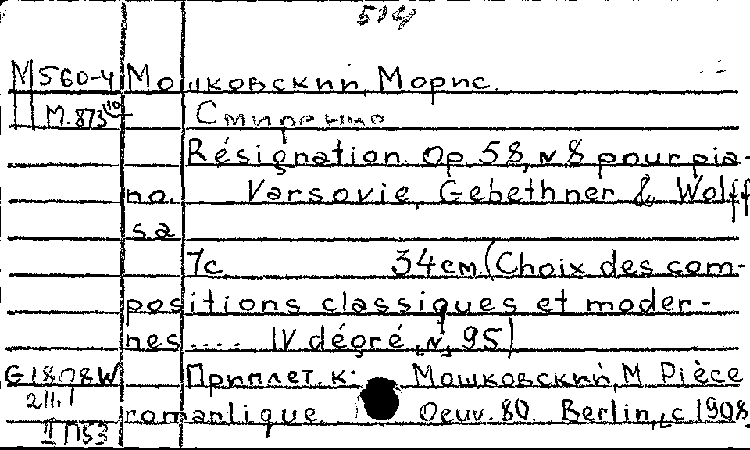 514
М 560-4 Мошковский, Морис.
М. 873 Смирение
Résignation. Op 58, N 8 pour pia-
no. Varsovie, Gebethner & Wolff
s.a
7с. 34см (Choix des com-
positions classiques et moder-
nes .... IV dégré, N, 95)
G 1808W Приплет. к: Мошковский, М Pièce
romantique. Oeuv. 80. Berlin, c 1908.
II П53